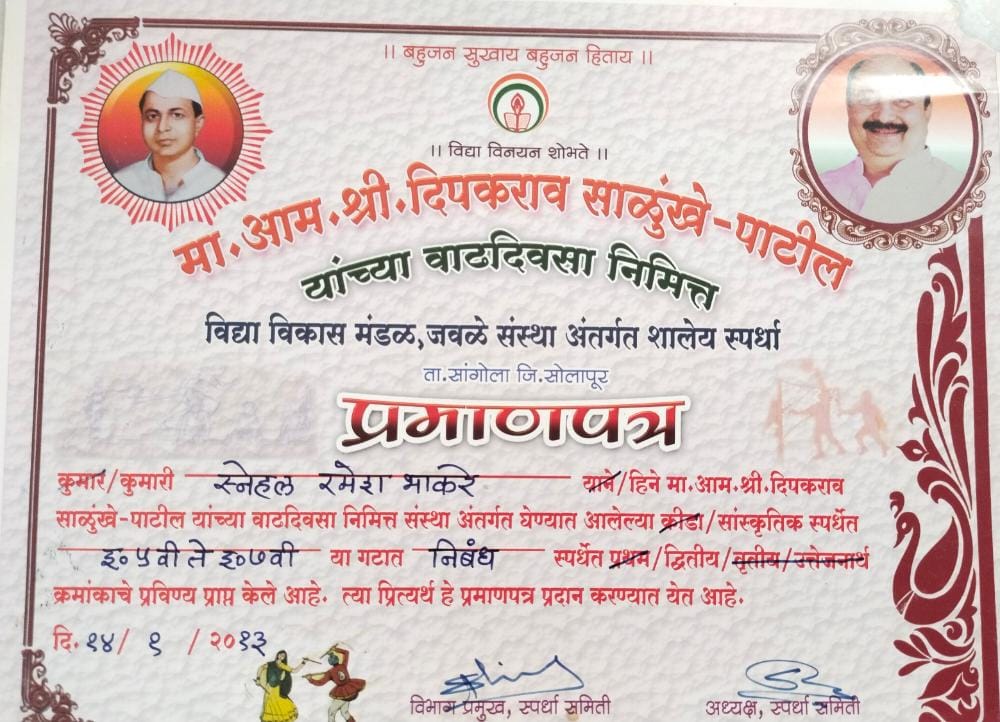 ।। बहुजन सुखाय बहुजन हिताय ।।
।। विद्या विनयन शोभते ।।
मा.आम.श्री.दिपकराव साळुंखे-पाटील
यांच्या वाढदिवसा निमित्त
विद्या विकास मंडळ,जवळे संस्था अंतर्गत शालेय स्पर्धा
ता.सांगोला जि.सोलापूर
प्रमाणपत्र
कुमार/कुमारी स्नेहल रमेश भाकरे याने/हिने मा.आम.श्री.दिपकराव
साळुंखे-पाटील यांच्या वाढदिवसा निमित्त संस्था अंतर्गत घेण्यात आलेल्या क्रीडा/सांस्कृतिक स्पर्धेत
इ०५वी ते इ०७वी या गटात निबंध स्पर्धेत प्रथम/द्वितीय/तृतीय/उत्तेजनार्थ
क्रमांकाचे प्रविण्य प्राप्त केले आहे. त्या प्रित्यर्थ हे प्रमाणपत्र प्रदान करण्यात येत आहे.
दि.१४/ १ /२०१३
विभाग प्रमुख, स्पर्धा समिती अध्यक्ष, स्पर्धा समिती